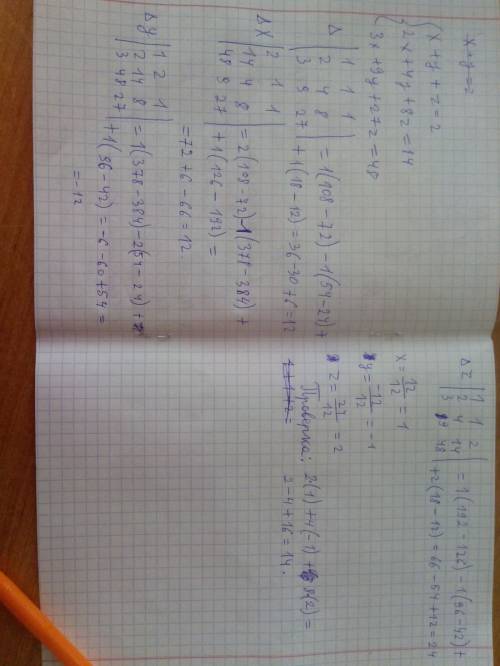 x=y=z
x+y+z=2
2x+4y+8z=14
3x+9y+27z=48
Δ
1 1 1
2 4 8 = 1(108-72)-1(54-24)+
3 9 27 +1(18-12)=36-30+6=12
Δx
2 1 1
14 4 8 = 2(108-72)-1(378-384)+
48 9 27 +1(126-192)=
=72+6-66=12
Δy
1 2 1
2 14 8 =1(378-384)-2(54-24)+
3 48 27 +1(96-42)=-6-60+54=
=-12
Δz
1 1 2
2 4 14 =1(192-126)-1(96-42)+
3 9 48 +2(18-12)=66-54+12=24
x=12/12=1
y=-12/12=-1
z=24/12=2
Проверка: 2(1)+4(-1)+8(2)=
2-4+16=14.